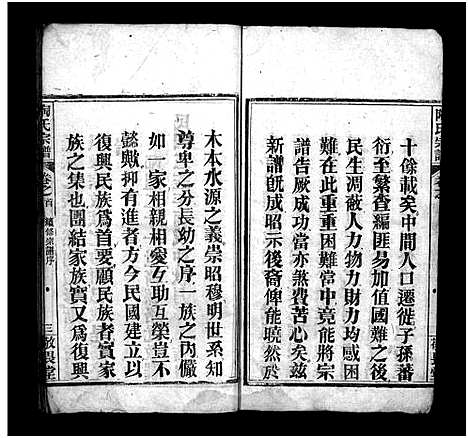 十餘載矣中間人口遷徙子孫蕃
衍至繁查編匪易加值國難之後
民生凋敝人力物力財力均感困
難在此重重困難當中竟能將宗
譜告厥成功當亦煞費苦心矣茲
新譜旣成昭示後裔俾能曉然于
木本水源之義崇昭穆明世系知
尊卑之分長幼之序一族之內儼
如一家相親相愛互助互榮豈不
懿歟抑有進者方今民國建立以
復興民族爲首要顧民族者實家
族之集也團結家族實又爲復興
陶氏宗譜
卷之首
續修宗譜序
三
敬畏堂